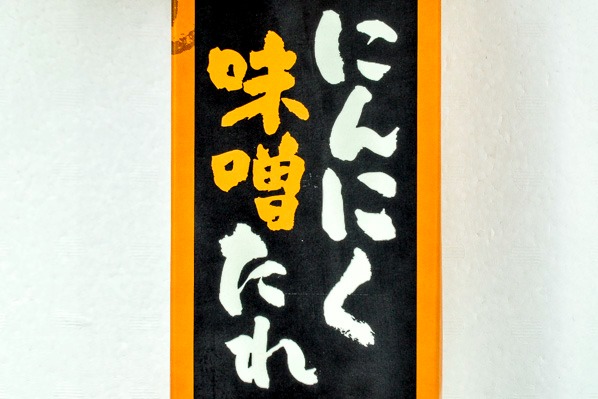 にんにく
味噌たれ